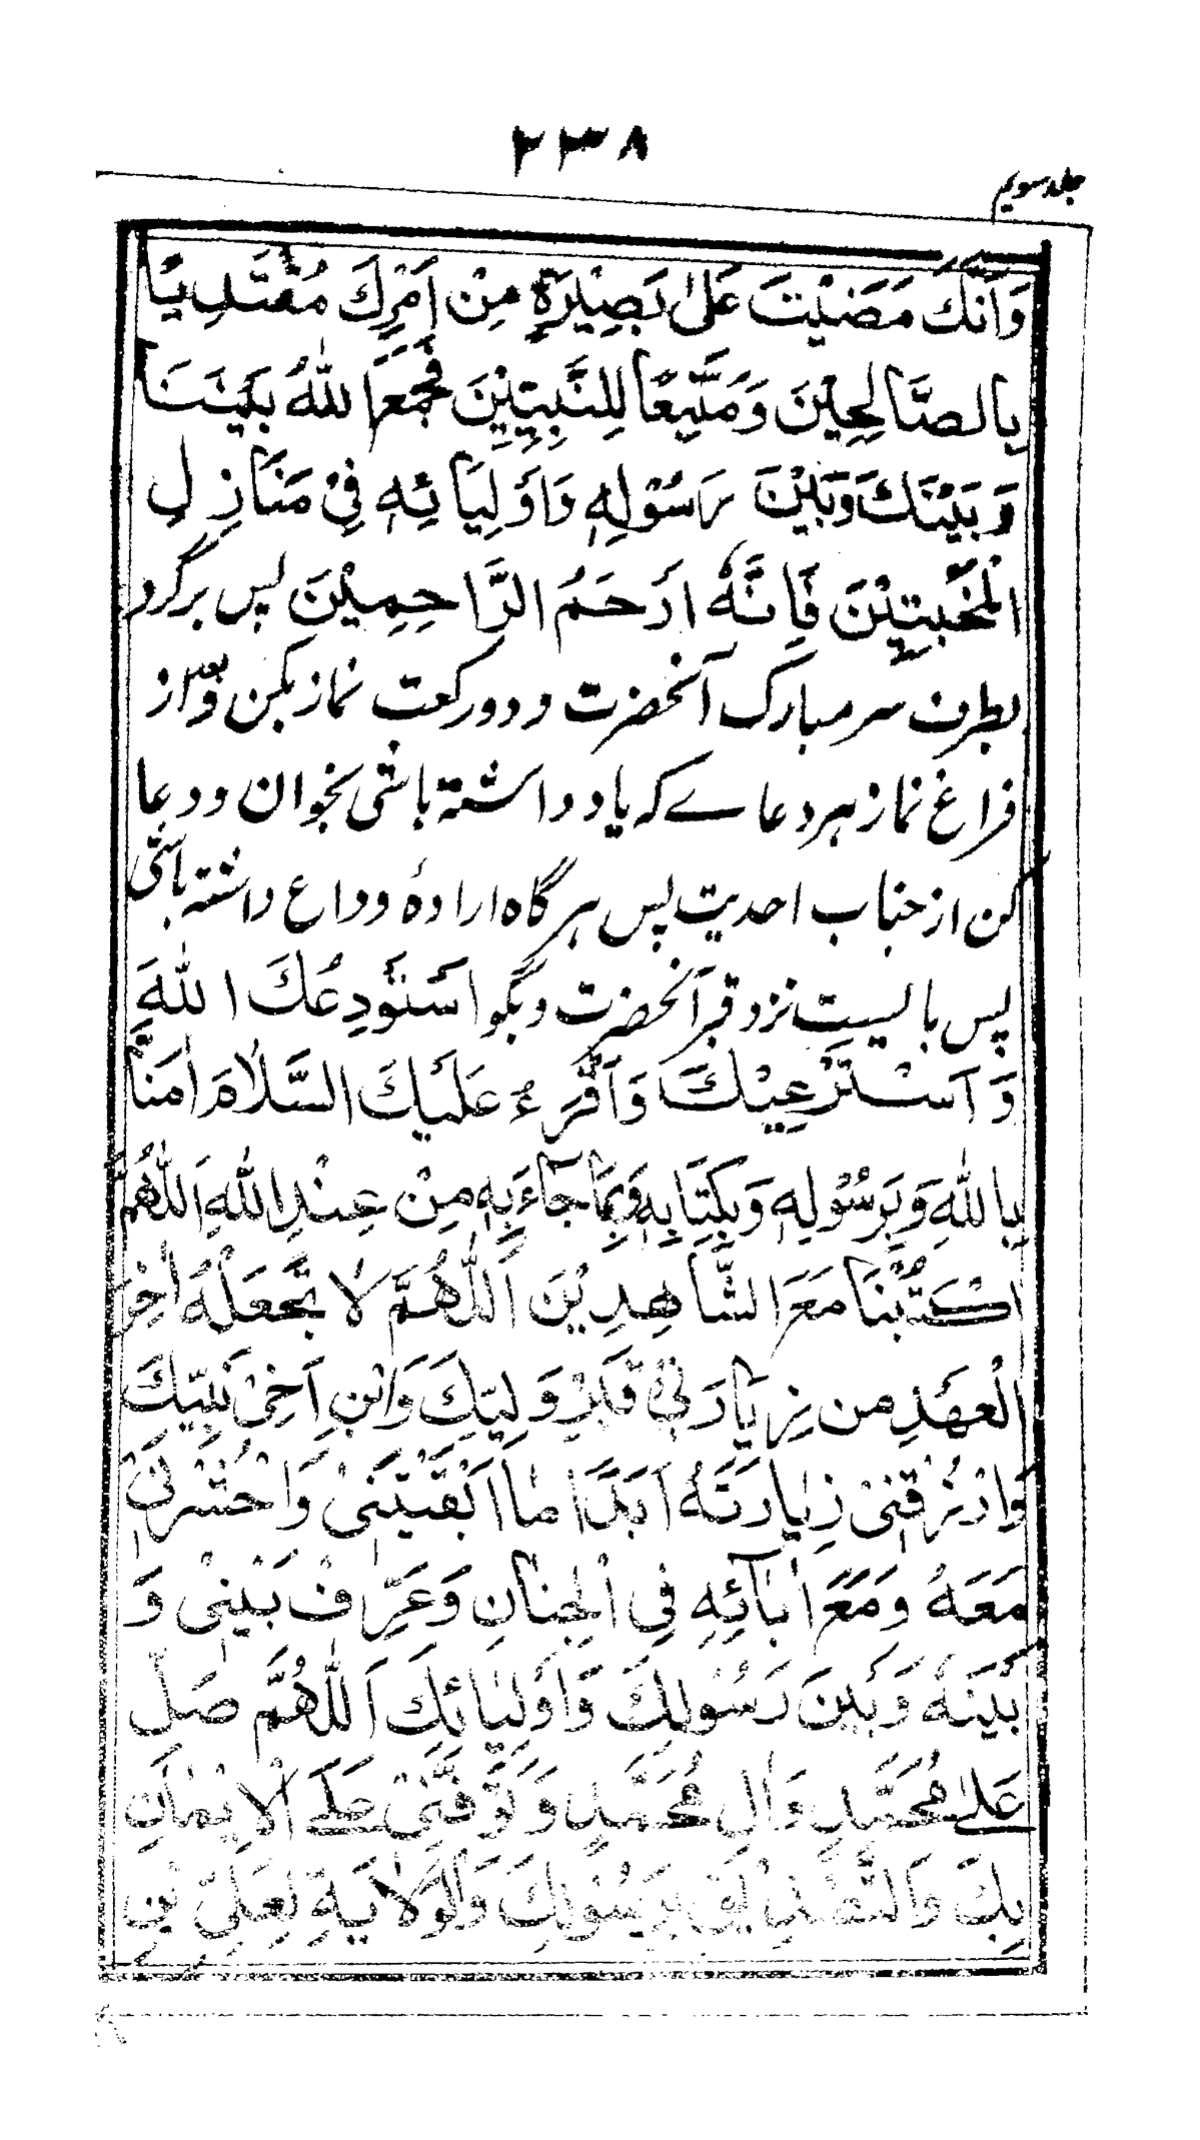 ۲۳۸
جلد سویم
وَاَنَّكَ مَضَيْتَ عَلىٰ بَصِيْرَةٍ مِنْ اَمْرِكَ مُقْتَدِيًا
بِالصَّالِحِيْنَ وَمُتَّبِعًا لِلنَّبِيِّيْنَ فَجَمَعَ اللهُ بَيْنَنَا
وَبَيْنَكَ وَبَيْنَ رَسُوْلِهٖ وَاَوْلِيَائِهٖ فِيْ مَنَازِلِ
الْمُخْبِتِيْنَ فَاِنَّهٗ اَرْحَمُ الرَّاحِمِيْنَ پس برگرد
بطرف سر مبارک آنحضرت و دو رکعت نماز بکن و بعد از
فراغ نماز هر دعاے که یاد داشته باشی بخوان و دعا
کن از جناب احدیت پس هرگاه ارادهٔ وداع داشته باشی
پس بالیست نزد قبر آنحضرت و بگو اَسْتَوْدِعُكَ اللهَ
وَاَسْتَرْعِيْكَ وَاَقْرَءُ عَلَيْكَ السَّلَامَ اٰمَنَّا
بِاللهِ وَبِرَسُوْلِهٖ وَبِكِتَابِهٖ وَبِمَا جَاءَ بِهٖ مِنْ عِنْدِ اللهِ اَللّٰهُمَّ
اكْتُبْنَا مَعَ الشَّاهِدِيْنَ اَللّٰهُمَّ لَا تَجْعَلْهُ اٰخِرَ
الْعَهْدِ مِن زِيَارَتِيْ قَبْرَ وَلِيِّكَ وَابْنِ اَخِيْ نَبِيِّكَ
وَارْزُقْنِيْ زِيَارَتَهُ اَبَدًا مَا اَبْقَيْتَنِيْ وَاحْشُرْنِيْ
مَعَهُ وَمَعَ اٰبَآئِهِ فِي الْجِنَانِ وَعَرِّفْ بَيْنِيْ وَ
بَيْنَهُ وَبَيْنَ رَسُوْلِكَ وَاَوْلِيَائِكَ اَللّٰهُمَّ صَلِّ
عَلىٰ مُحَمَّدٍ وَاٰلِ مُحَمَّدٍ وَتَوَفَّنِيْ عَلَى الْاِيْمَانِ
بِكَ وَالتَّصْدِيْقِ بِرَسُوْلِكَ وَالْوَلَايَةِ لِعَلِيِّ بْنِ